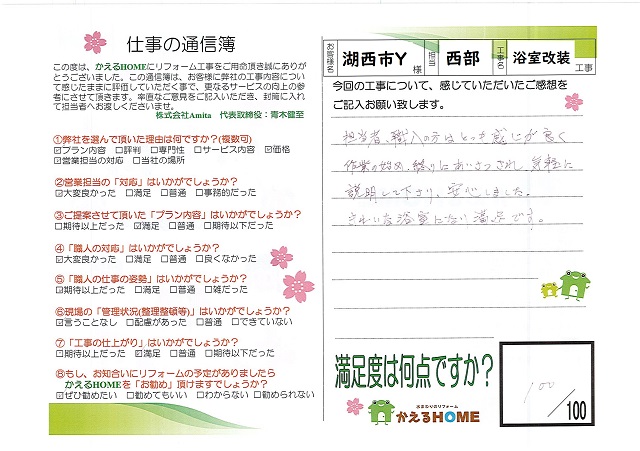 仕事の通信簿
この度は、かえるHOMEにリフォーム工事をご用命頂き誠にありが
とうございました。この通信簿は、お客様に弊社の工事内容につい
て感じたままに評価していただく事で、更なるサービスの向上の参
考にさせて頂きます。率直なご意見をご記入いただき、封筒に入れ
て担当者へお渡しくださいませ。
株式会社Amita 代表取締役：青木健至
①弊社を選んで頂いた理由は何ですか?(複数可)
☑プラン内容 □評判 □専門性 □サービス内容 ☑価格
☑営業担当の対応 □当社の場所
②営業担当の「対応」はいかがでしょうか?
☑大変良かった □満足 □普通 □事務的だった
③ご提案させて頂いた「プラン内容」はいかがでしょうか?
□期待以上だった ☑満足 □普通 □期待以下だった
④「職人の対応」はいかがでしょうか?
☑大変良かった □満足 □普通 □良くなかった
⑤「職人の仕事の姿勢」はいかがでしょうか?
☑期待以上だった □満足 □普通 □雑だった
⑥現場の「管理状況(整理整頓等)」はいかがでしょうか?
☑言うことなし □配慮があった □普通 □できていない
⑦「工事の仕上がり」はいかがでしょうか?
□期待以上だった ☑満足 □普通 □期待以下だった
⑧もし、お知合いにリフォームの予定がありましたら
かえるHOMEを「お勧め」頂けますでしょうか?
☑ぜひ勧めたい □勧めてもいい □わからない □勧められない
お客様名 湖西市Y 様 担当 西部 工事名 浴室改装 工事
今回の工事について、感じていただいたご感想を
ご記入お願い致します。
担当者、職人の方はとても感じが良く
作業の始め、終りにあいさつされ 気軽に
説明して下さり、安心しました。
きれいな浴室になり満足です。
満足度は何点ですか?
100/100
水まわりのリフォーム
かえるHOME